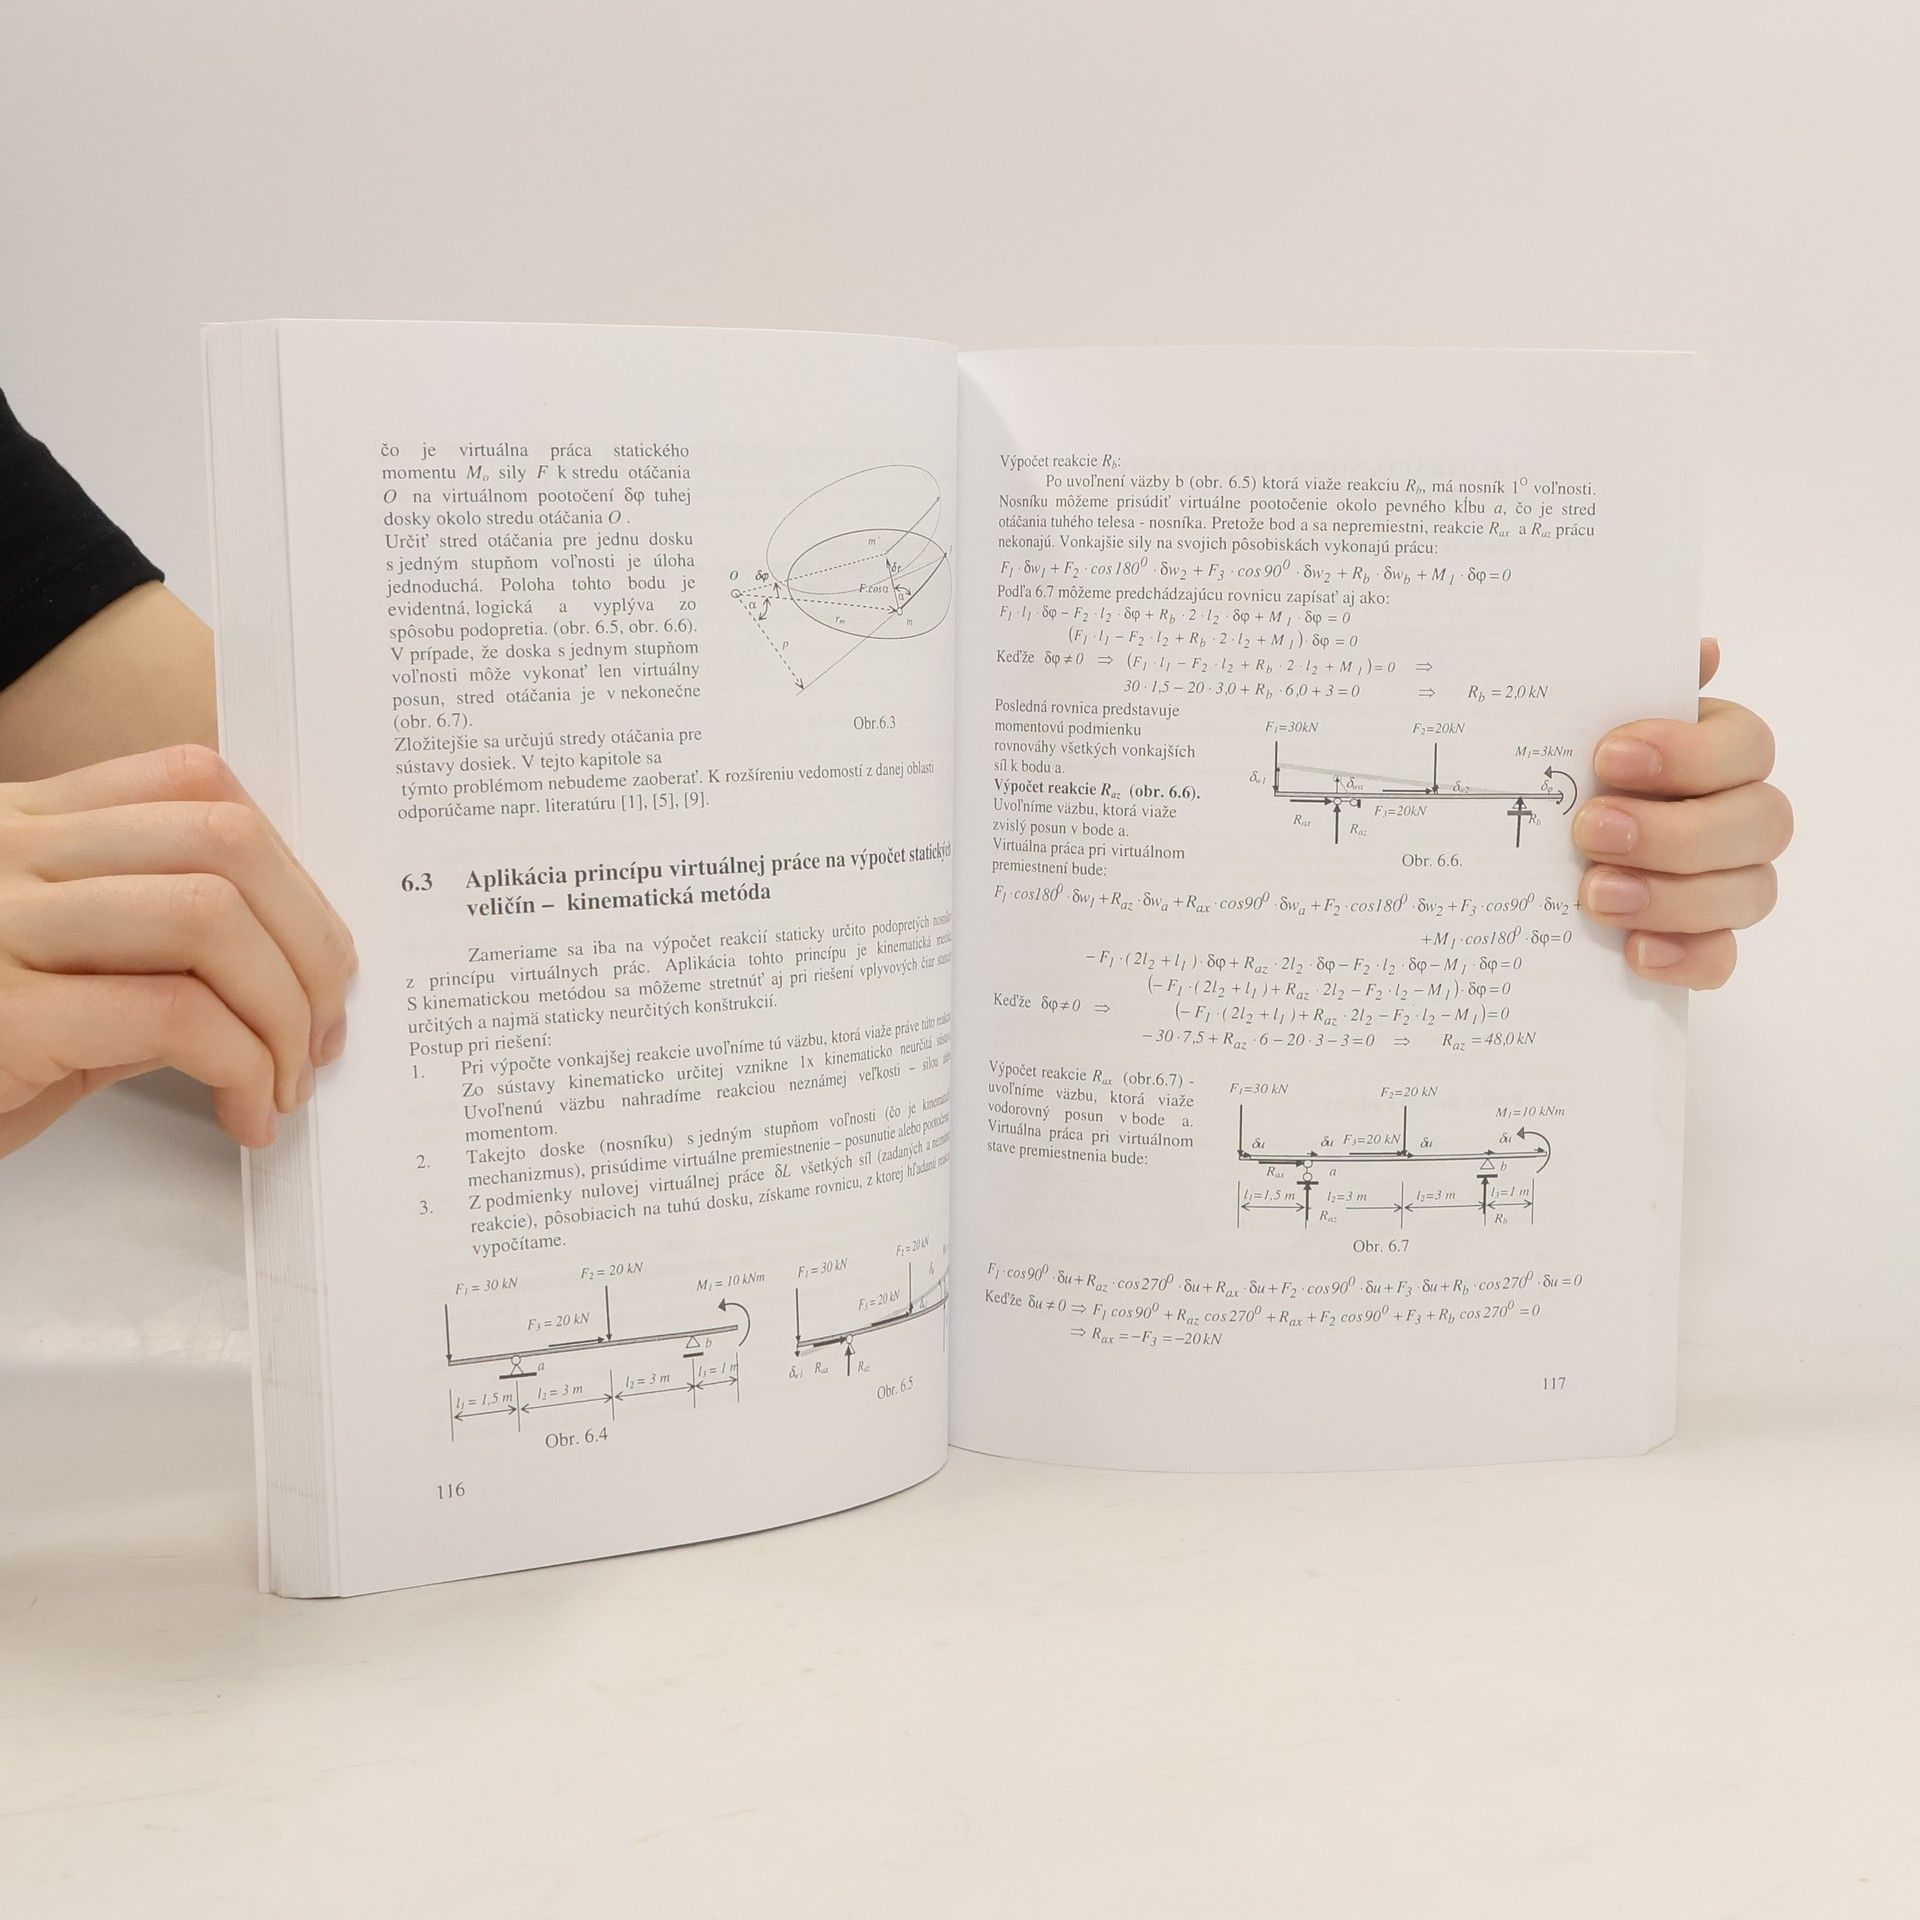 čo je virtuálna práca statického
momentu Mo sily F k stredu otáčania
O na virtuálnom pootočení δφ tuhej
dosky okolo stredu otáčania O .
Určiť stred otáčania pre jednu dosku
s jedným stupňom voľnosti je úloha
jednoduchá. Poloha tohto bodu je
evidentná, logická a vyplýva zo
spôsobu podopretia. (obr. 6.5, obr. 6.6).
V prípade, že doska s jedným stupňom
voľnosti môže vykonať len virtuálny
posun, stred otáčania je v nekonečne
(obr. 6.7).
Zložitejšie sa určujú stredy otáčania pre
sústavy dosiek. V tejto kapitole sa
týmto problémom nebudeme zaoberať. K rozšíreniu vedomostí z danej oblasti
odporúčame napr. literatúru [1], [5], [9].
O δφ α m´ δr F.cosα α rm m p
Obr.6.3
6.3 Aplikácia princípu virtuálnej práce na výpočet statických
veličín – kinematická metóda
Zameriame sa iba na výpočet reakcií staticky určito podopretých
z princípu virtuálnych prác. Aplikácia tohto princípu je kinematická
S kinematickou metódou sa môžeme stretnúť aj pri riešení vplyvových čiar
určitých a najmä staticky neurčitých konštrukcií.
Postup pri riešení:
1. Pri výpočte vonkajšej reakcie uvoľníme tú väzbu, ktorá viaže práve túto
Zo sústavy kinematicko určitej vznikne 1x kinematicko neurčitá
Uvoľnenú väzbu nahradíme reakciou neznámej veľkosti – silou
momentom.
2. Takejto doske (nosníku) s jedným stupňom voľnosti (čo je
mechanizmus), prisúdime virtuálne premiestnenie – posunutie alebo
3. Z podmienky nulovej virtuálnej práce δL všetkých síl (zadaných a
reakcie), pôsobiacich na tuhú dosku, získame rovnicu, z ktorej hľadanú
vypočítame.
F1 = 30 kN F2 = 20 kN M1 = 10 kNm
F3 = 20 kN
a b
l1 = 1,5 m l2 = 3 m l2 = 3 m l3 = 1 m
Obr. 6.4
F1 = 30 kN F2 = 20 kN
F3 = 20 kN
δw1 Rax Raz
Obr. 6.5
116
Výpočet reakcie Rb:
Po uvoľnení väzby b (obr. 6.5) ktorá viaže reakciu Rb, má nosník 1° voľnosti.
Nosníku môžeme prisúdiť virtuálne pootočenie okolo pevného kĺbu a, čo je stred
otáčania tuhého telesa - nosníka. Pretože bod a sa nepremiestni, reakcie Rax a Raz prácu
nekonajú. Vonkajšie sily na svojich pôsobiskách vykonajú prácu:
F1 · δw1 + F2 · cos 180⁰ · δw2 + F3 · cos 90⁰ · δw2 + Rb · δwb + M1 · δφ = 0
Podľa 6.7 môžeme predchádzajúcu rovnicu zapísať aj ako:
F1 · l1 · δφ − F2 · l2 · δφ + Rb · 2 · l2 · δφ + M1 · δφ = 0
(F1 · l1 − F2 · l2 + Rb · 2 · l2 + M1) · δφ = 0
Keďže δφ ≠ 0 ⇒ (F1 · l1 − F2 · l2 + Rb · 2 · l2 + M1) = 0 ⇒
30 · 1,5 − 20 · 3,0 + Rb · 6,0 + 3 = 0 ⇒ Rb = 2,0 kN
Posledná rovnica predstavuje
momentovú podmienku
rovnováhy všetkých vonkajších
síl k bodu a.
Výpočet reakcie Raz (obr. 6.6).
Uvoľníme väzbu, ktorá viaže
zvislý posun v bode a.
Virtuálna práca pri virtuálnom
premiestnení bude:
F1=30kN F2=20kN
M1=3kNm
δw1 δwa δw2 δφ
Rax Raz F3=20kN Rb
Obr. 6.6.
F1 · cos180⁰ · δw1 + Raz · δwa + Rax · cos90⁰ · δwa + F2 · cos180⁰ · δw2 + F3 · cos90⁰ · δw2 +
+ M1 · cos180⁰ · δφ = 0
− F1 · (2l2 + l1) · δφ + Raz · 2l2 · δφ − F2 · l2 · δφ − M1 · δφ = 0
(− F1 · (2l2 + l1) + Raz · 2l2 − F2 · l2 − M1) · δφ = 0
Keďže δφ ≠ 0 ⇒ (− F1 · (2l2 + l1) + Raz · 2l2 − F2 · l2 − M1) = 0
− 30 · 7,5 + Raz · 6 − 20 · 3 − 3 = 0 ⇒ Raz = 48,0 kN
Výpočet reakcie Rax (obr.6.7) -
uvoľníme väzbu, ktorá viaže
vodorovný posun v bode a.
Virtuálna práca pri virtuálnom
stave premiestnenia bude:
F1=30 kN F2=20 kN
M1=10 kNm
δu δu F3=20 kN δu δu
Rax a b
l1=1,5 m l2=3 m l2=3 m l3=1 m
Raz Rb
Obr. 6.7
F1 · cos90⁰ · δu + Raz · cos270⁰ · δu + Rax · δu + F2 · cos90⁰ · δu + F3 · δu + Rb · cos270⁰ · δu = 0
Keďže δu ≠ 0 ⇒ F1 cos90⁰ + Raz cos270⁰ + Rax + F2 cos90⁰ + F3 + Rb cos270⁰ = 0
⇒ Rax = −F3 = −20 kN
117